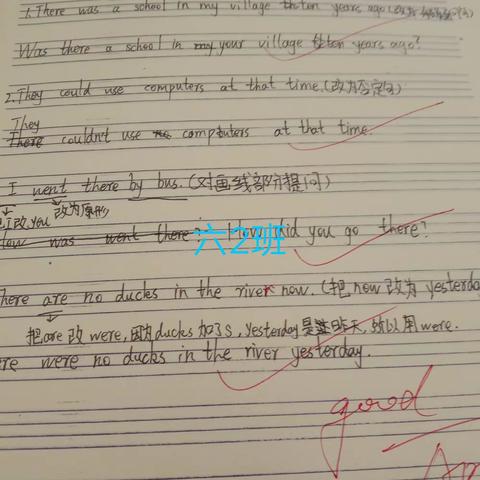 1. There was a school in my village ten years ago.
Was there a school in your village ten years ago?
2. They could use computers at that time. (改为否定句)
They
There couldn't use computers at that time.
I went there by bus. (对画线部分提问)
把I改you 改为原形
How was went there? How did you go there?
here are no ducks in the river now. (把now改为yesterda
把are改were, 因为ducks加了s, yesterday是昨天, 所以用were.
re were no ducks in the river yesterday.
good
六2班